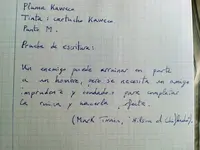 Pluma Kaweco
Tinta: cartucho Kaweco
Punto M.
Prueba de escritura:
Un enemigo puede arruinar en parte
a un hombre, pero se necesita un amigo
imprudente y para completar
la ruina y hacerla
(Mark Twain,